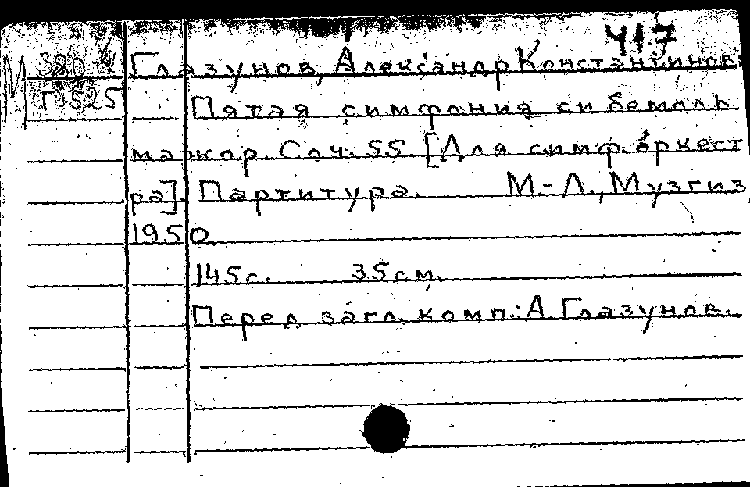 417
Глазунов, Александр Константинов.
Пятая симфония си бемоль
мажор. Соч. 55 [Для симф. оркест
ра]. Партитура. М.-Л., Музгиз,
1950
145с. 35см.
Перед загл. комп.: А. Глазунов.